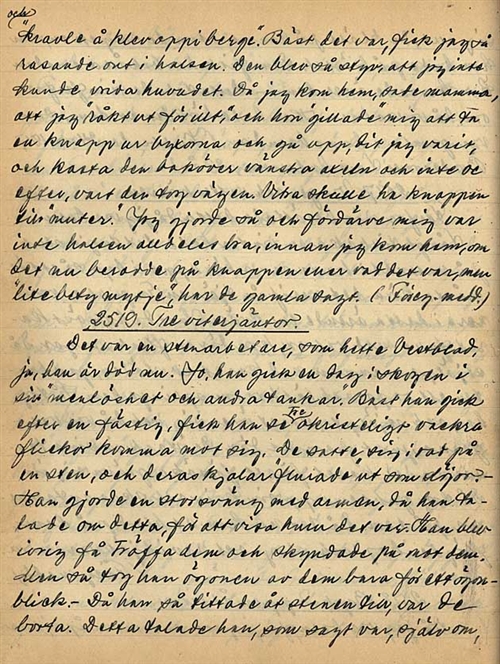 och
"kravle å klev oppi berge". Bäst det var, fick jag så
rasande ont i halsen. Den blev så styv, att jag inte
kunde vrida huvudet. Då jag kom hem, sade mamma,
att jag "råkt ut för illt," och hon "gillade" mig att ta
en knapp ur byxorna och gå opp, dit jag varit,
och kasta den baköver vänstra axeln och inte se
efter, vart den tog vägen. Vitra skulle ha knappen
till "muter." Jag gjorde så och fördärve mig var
inte halsen alldeles bra, innan jag kom hem, om
det nu berodde på knappen eller vad det var, men
"lite bety mytje", har de gamla sagt. (Föreg. medd.)
2519. Tre viterjäntor.
Det var en stenarbetare, som hette Vestblad,
ja, han är död nu. Jo, han gick en dag i skogen i
sin "menlöshet och andra tankar." Bäst han gick
efter en fästig, fick han se tre okristeligt vackra
flickor komma mot sig. De satte sig i rad på
en sten, och deras kjolar "flurade" ut som slöjor. -
Han gjorde en stor sväng med armen, då han ta-
lade om detta, för att visa huru det var. Han blev
ivrig få träffa dem och skyndade på mot dem.
Men så tog han ögonen av dem bara för ett ögon-
blick. - Då han så tittade åt stenen till, var de
borta. Detta talade han, som sagt var, själv om,